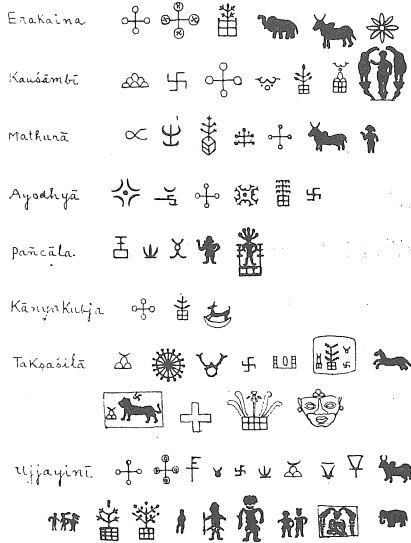 Erakaina
Kauśāmbī
Mathurā
Ayodhyā
Pañcāla.
Kānyakubja
Takṣaśilā
Ujjayinī.